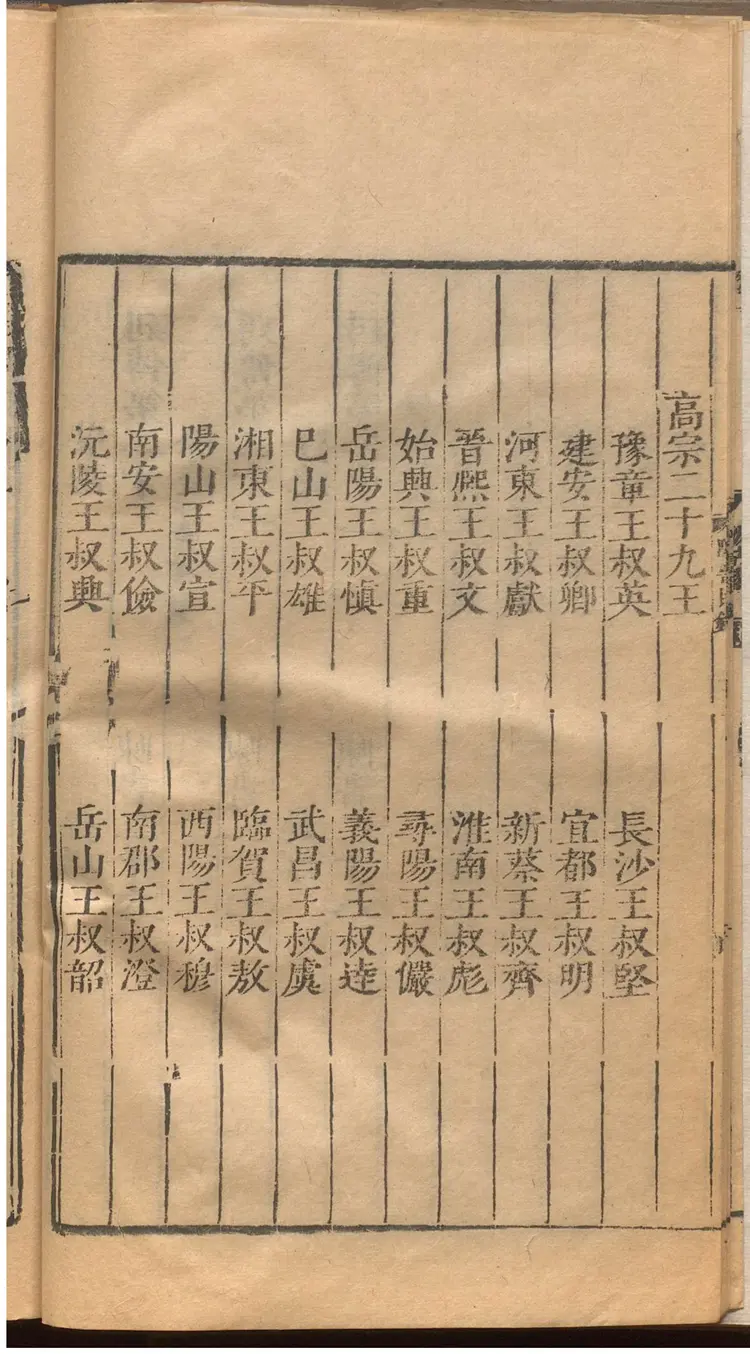 高宗二十九王
豫章王叔英　長沙王叔堅
建安王叔卿　宜都王叔明
河東王叔獻　新蔡王叔齊
晉熙王叔文　淮南王叔彪
始興王叔重　尋陽王叔儼
岳陽王叔慎　義陽王叔逹
巴山王叔雄　武昌王叔虞
湘東王叔平　臨賀王叔敖
陽山王叔宣　西陽王叔穆
南安王叔儉　南郡王叔澄
沅陵王叔興　岳山王叔韶